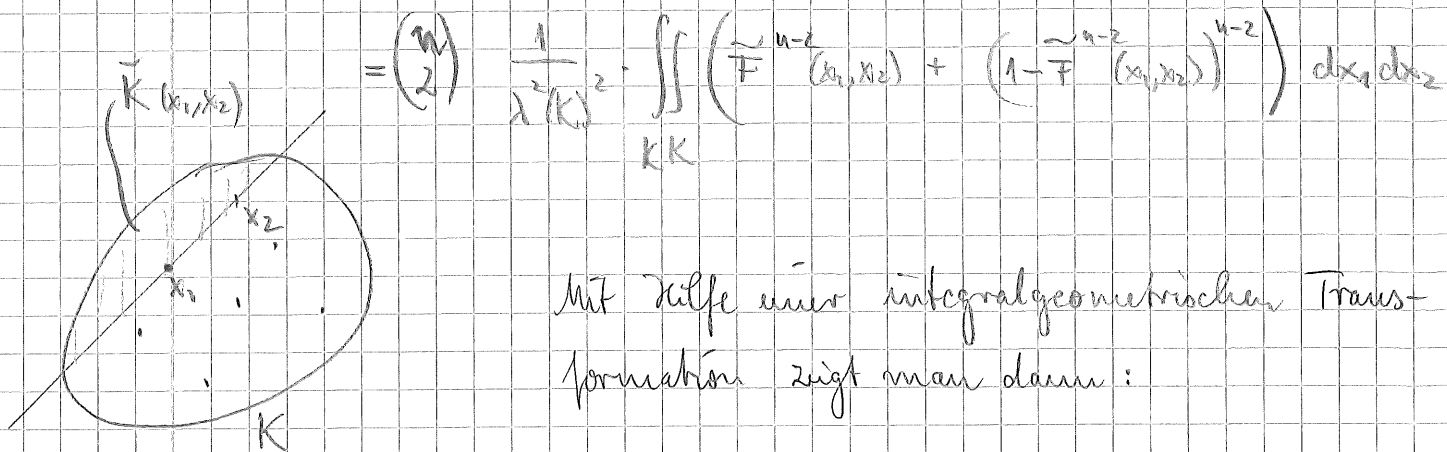 K̄(x₁,x₂)
= (n 2) 1/λ²(K)² · ∬ ( F̃ⁿ⁻² (x₁,x₂) + (1 - F̃ⁿ⁻² (x₁,x₂))ⁿ⁻² ) dx₁dx₂
K K
x₂
x₁
Mit Hilfe einer integralgeometrischen Trans-
formation zeigt man dann:
K